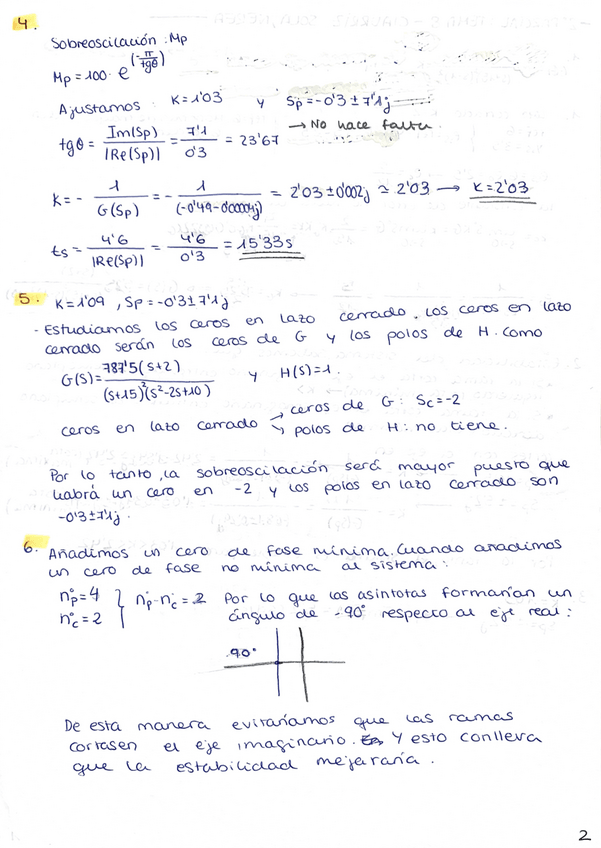 4.
Sobreoscilación: Mp
Mp = 100 · e^(-π/tgθ)
Ajustamos K=1'03 y Sp=-0'3±7'1j
→ No hace falta
tgθ = Im(Sp)/|Re(Sp)| = 7'1/0'3 = 23'67
K = - 1/G(Sp) = - 1/(-0'49-0'00004j) = 2'03 ± 0'002j ≃ 2'03 → K=2'03
ts = 4'6/|Re(Sp)| = 4'6/0'3 = 15'33s
5. K=1'09, Sp=-0'3±7'1j
- Estudiamos los ceros en lazo cerrado. Los ceros en lazo
cerrado serán los ceros de G y los polos de H. Como
G(s)= 787'5(s+2)/(s+15)²(s²-2s+10) y H(s)=1.
ceros en lazo cerrado → ceros de G: Sc=-2
→ polos de H: no tiene.
Por lo tanto, la sobreoscilación será mayor puesto que
habrá un cero en -2 y los polos en lazo cerrado son
-0'3±7'1j.
6. Añadimos un cero de fase mínima. Cuando añadimos
un cero de fase no mínima al sistema:
nºp=4
nºc=2 } nºp-nºc=2 Por lo que las asíntotas formarían un
ángulo de -90° respecto al eje real:
-90°
De esta manera evitaríamos que las ramas
cortasen el eje imaginario. Y esto conlleva
que la estabilidad mejoraría.
2